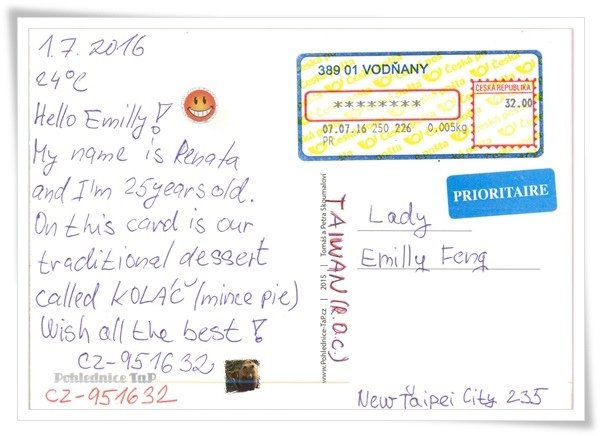 1.7. 2016
24°C
Hello Emilly!
My name is Renata
and I'm 25 years old.
On this card is our
traditional dessert
called KOLÁČ (mince pie)
Wish all the best!
CZ-951632
Pohlednice TaP
CZ-951632
www.Pohlednice-TaP.cz | 2015 | Tomáš a Petra Škoumalovi
TAIWAN (R.O.C.)
389 01 VODŇANY
********
07.07.16 250 226 0,005kg
PR
ČESKÁ REPUBLIKA
32.00
Česká pošta
PRIORITAIRE
Lady
Emilly Feng
New Taipei City 235